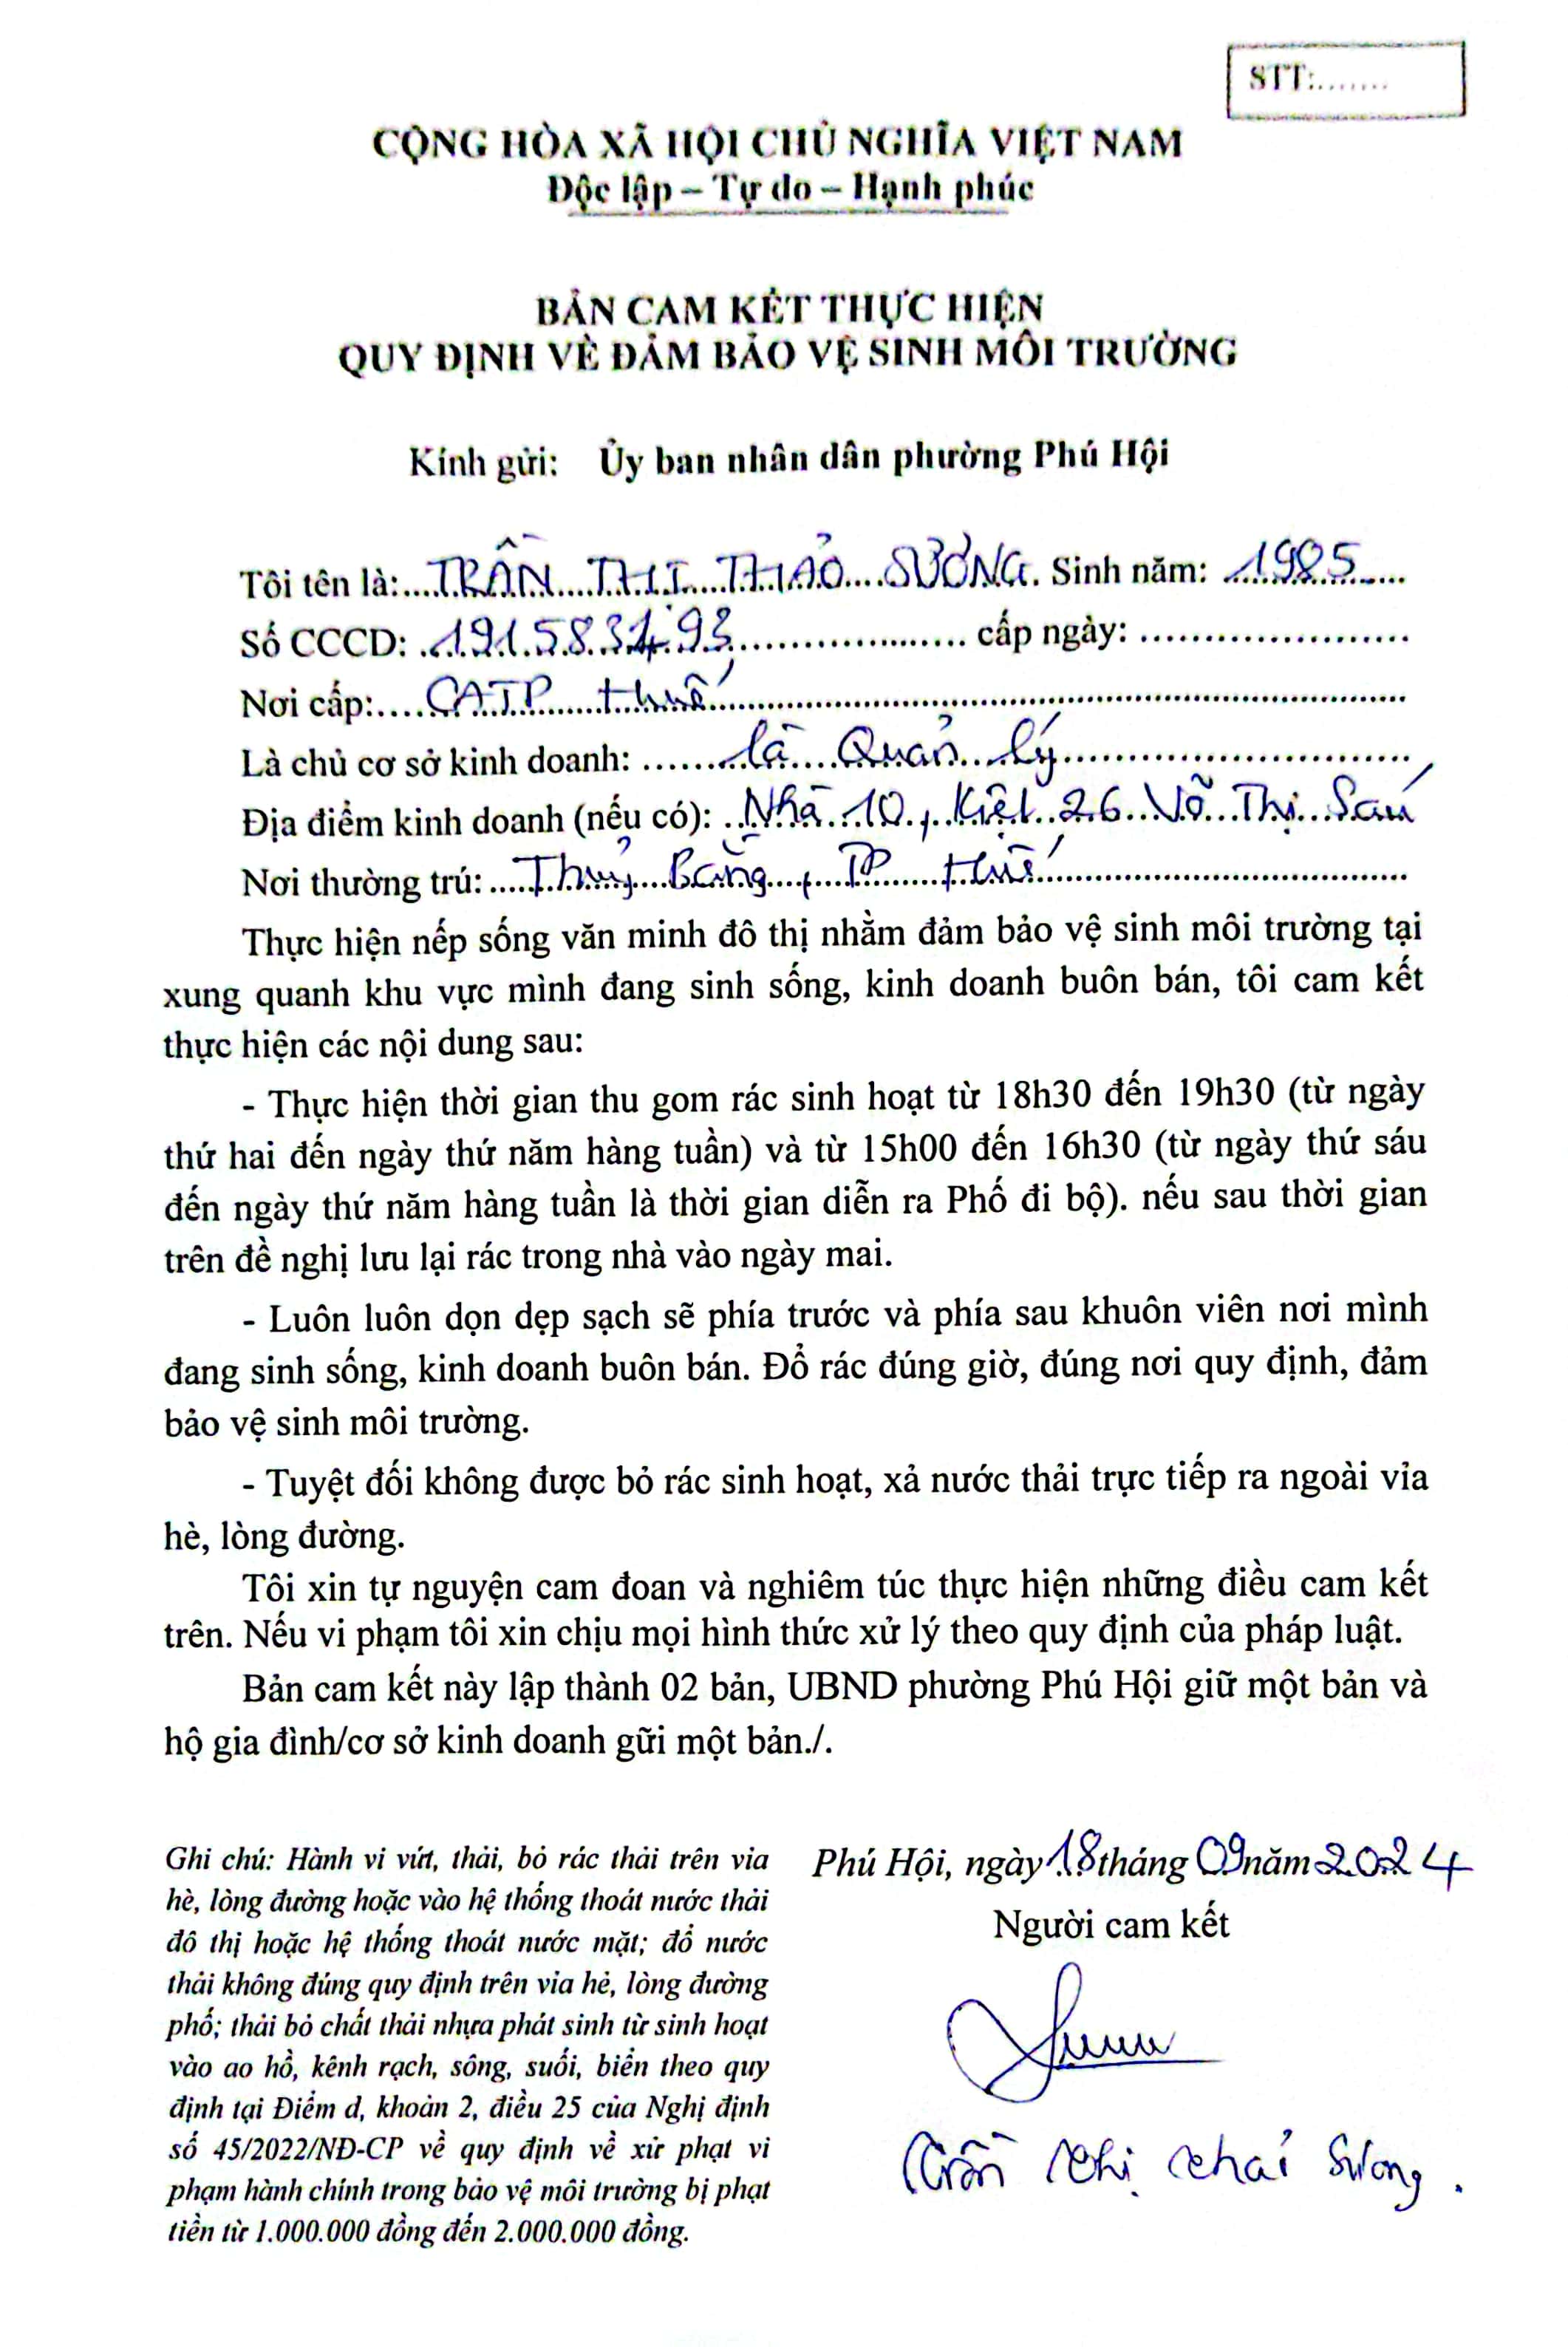 STT:.......
CỘNG HÒA XÃ HỘI CHỦ NGHĨA VIỆT NAM
Độc lập – Tự do – Hạnh phúc
BẢN CAM KẾT THỰC HIỆN
QUY ĐỊNH VỀ ĐẢM BẢO VỆ SINH MÔI TRƯỜNG
Kính gửi: Ủy ban nhân dân phường Phú Hội
Tôi tên là: TRẦN THỊ THẢO SƯƠNG. Sinh năm: 1985
Số CCCD: 191583193 cấp ngày: ......................
Nơi cấp: CATP Huế
Là chủ cơ sở kinh doanh: là Quản lý
Địa điểm kinh doanh (nếu có): Nhà 10, Kiệt 26 Võ Thị Sáu
Nơi thường trú: Thuỷ Bằng, TP Huế
Thực hiện nếp sống văn minh đô thị nhằm đảm bảo vệ sinh môi trường tại
xung quanh khu vực mình đang sinh sống, kinh doanh buôn bán, tôi cam kết
thực hiện các nội dung sau:
- Thực hiện thời gian thu gom rác sinh hoạt từ 18h30 đến 19h30 (từ ngày
thứ hai đến ngày thứ năm hàng tuần) và từ 15h00 đến 16h30 (từ ngày thứ sáu
đến ngày thứ năm hàng tuần là thời gian diễn ra Phố đi bộ). nếu sau thời gian
trên đề nghị lưu lại rác trong nhà vào ngày mai.
- Luôn luôn dọn dẹp sạch sẽ phía trước và phía sau khuôn viên nơi mình
đang sinh sống, kinh doanh buôn bán. Đổ rác đúng giờ, đúng nơi quy định, đảm
bảo vệ sinh môi trường.
- Tuyệt đối không được bỏ rác sinh hoạt, xả nước thải trực tiếp ra ngoài vỉa
hè, lòng đường.
Tôi xin tự nguyện cam đoan và nghiêm túc thực hiện những điều cam kết
trên. Nếu vi phạm tôi xin chịu mọi hình thức xử lý theo quy định của pháp luật.
Bản cam kết này lập thành 02 bản, UBND phường Phú Hội giữ một bản và
hộ gia đình/cơ sở kinh doanh gữi một bản./.
Ghi chú: Hành vi vứt, thải, bỏ rác thải trên vỉa
hè, lòng đường hoặc vào hệ thống thoát nước thải
đô thị hoặc hệ thống thoát nước mặt; đổ nước
thải không đúng quy định trên vỉa hè, lòng đường
phố; thải bỏ chất thải nhựa phát sinh từ sinh hoạt
vào ao hồ, kênh rạch, sông, suối, biển theo quy
định tại Điểm d, khoản 2, điều 25 của Nghị định
số 45/2022/NĐ-CP về quy định về xử phạt vi
phạm hành chính trong bảo vệ môi trường bị phạt
tiền từ 1.000.000 đồng đến 2.000.000 đồng.
Phú Hội, ngày 18 tháng 09 năm 2024
Người cam kết
Trần Thị Thảo Sương.